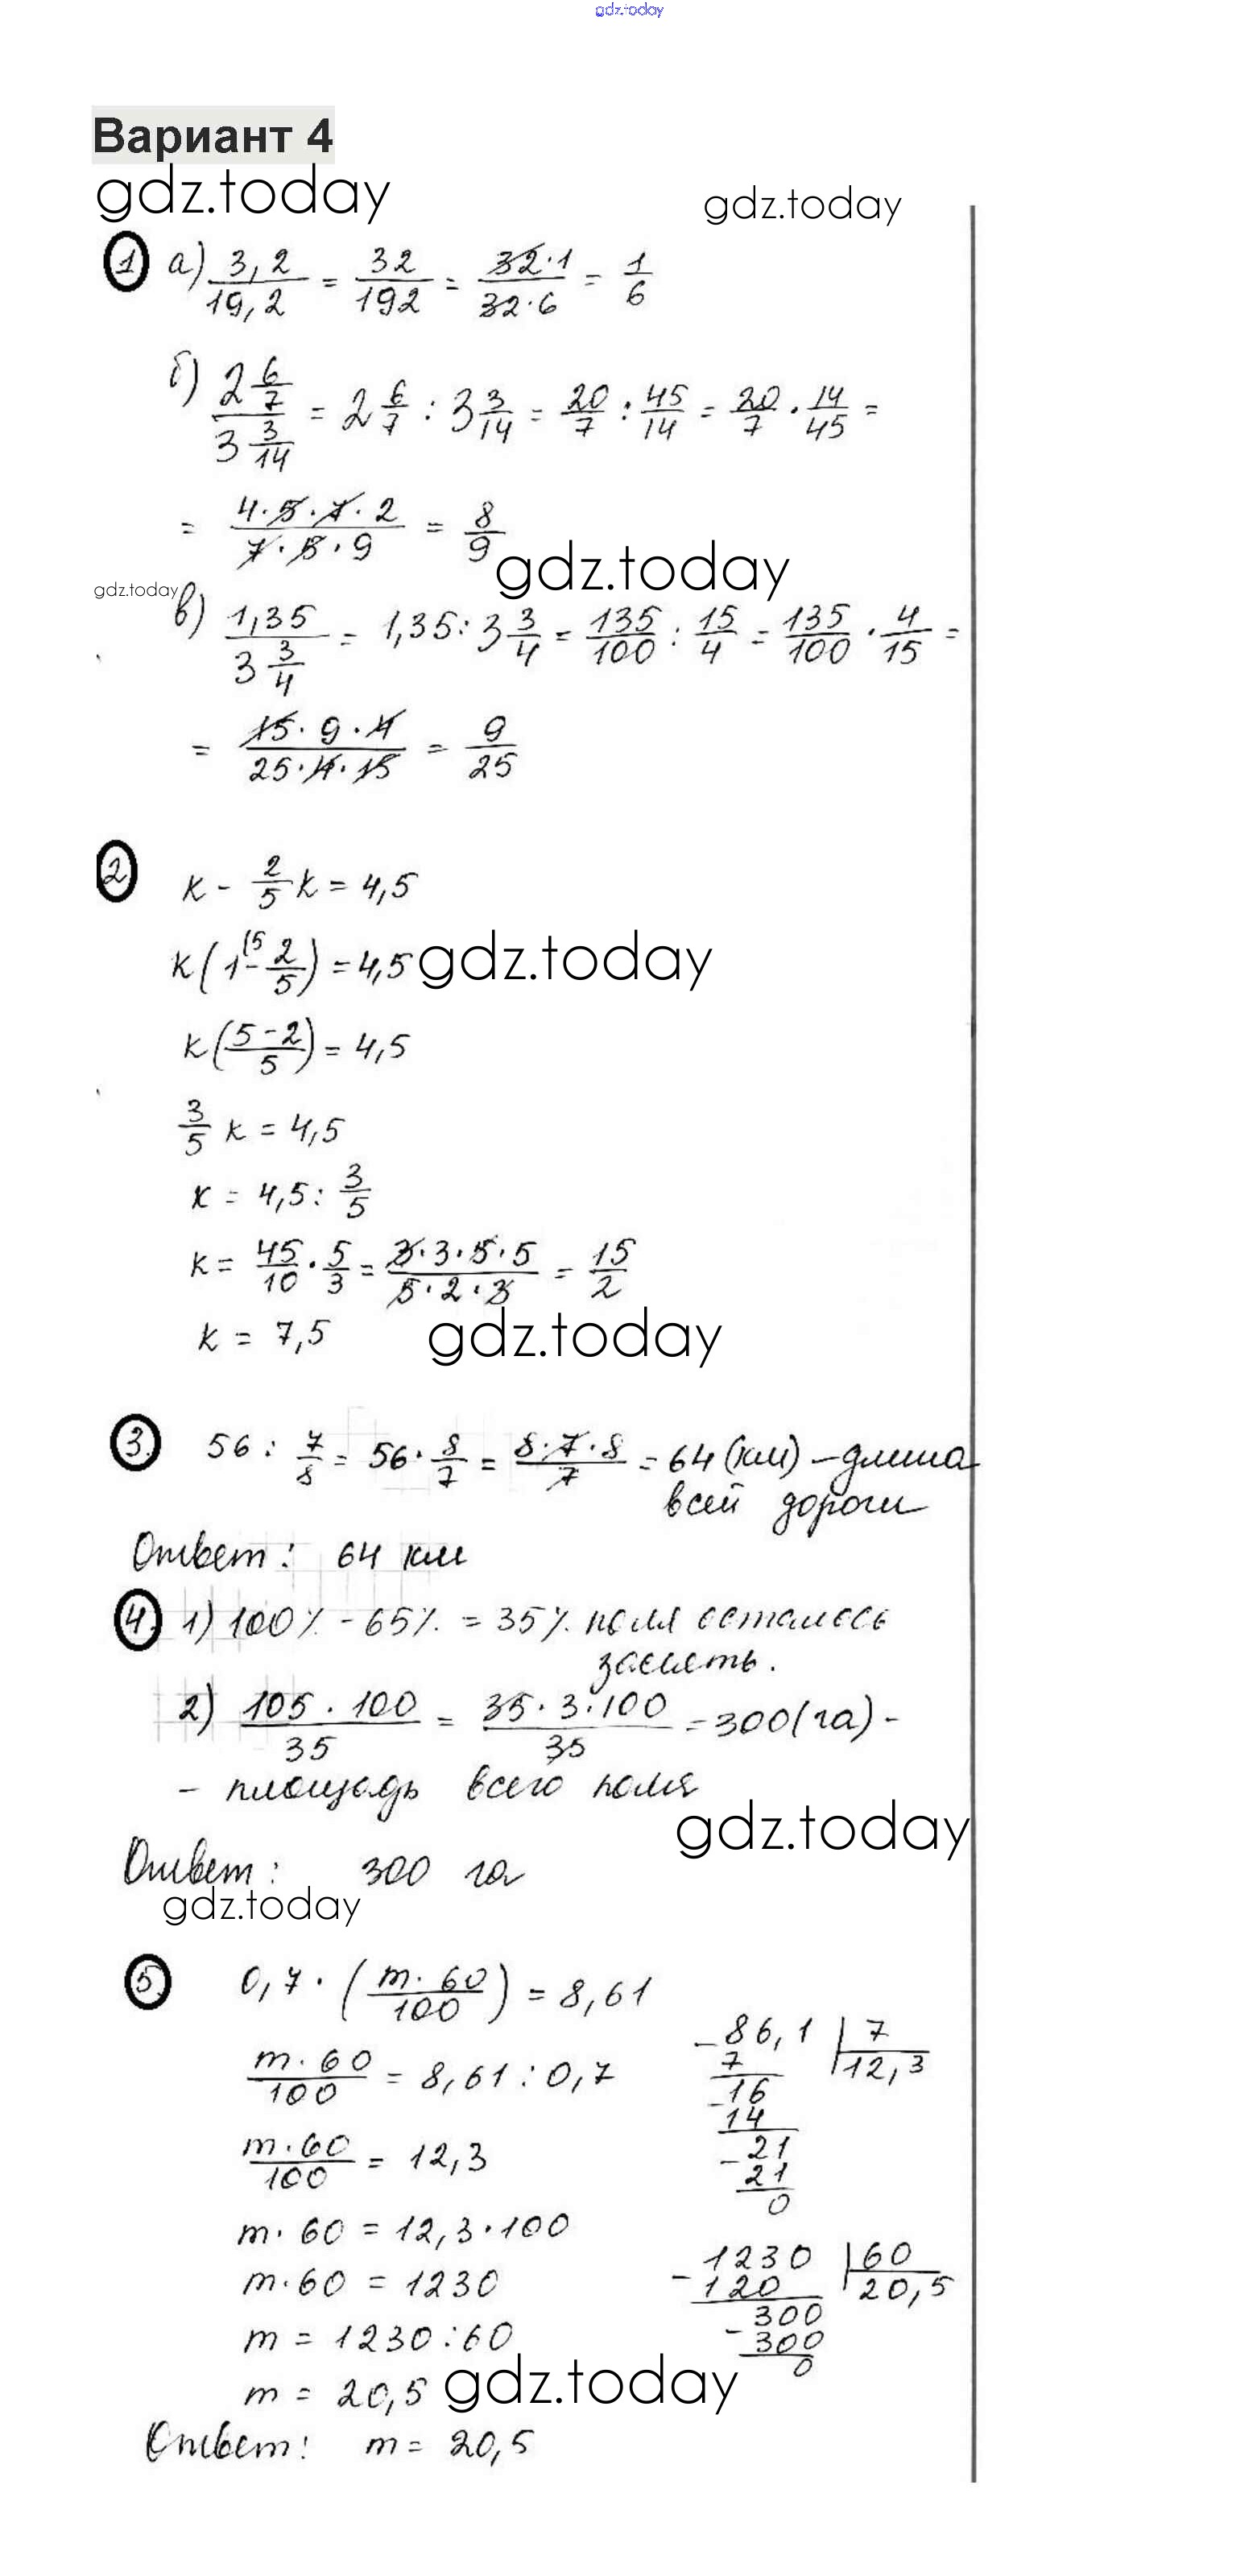 gdz.today
Вариант 4
gdz.today gdz.today
1 а) 3,2/19,2 = 32/192 = 32·1/32·6 = 1/6
б) 2 6/7 / 3 3/14 = 2 6/7 : 3 3/14 = 20/7 : 45/14 = 20/7 · 14/45 =
= 4·5·7·2/7·5·9 = 8/9
gdz.today
gdz.today
в) 1,35 / 3 3/4 = 1,35 : 3 3/4 = 135/100 : 15/4 = 135/100 · 4/15 =
= 15·9·4/25·4·15 = 9/25
2 к - 2/5 к = 4,5
к(1 (5 - 2/5) = 4,5
gdz.today
к(5-2/5) = 4,5
3/5 к = 4,5
к = 4,5 : 3/5
к = 45/10 · 5/3 = 3·3·5·5/5·2·3 = 15/2
к = 7,5
gdz.today
3. 56 : 7/8 = 56 · 8/7 = 8·7·8/7 = 64 (км) – длина
всей дороги
Ответ: 64 км
4. 1) 100% - 65% = 35% поля осталось
засеять.
2) 105·100/35 = 35·3·100/35 = 300 (га) -
- площадь всего поля
gdz.today
Ответ: 300 га
gdz.today
5. 0,7 · (m·60/100) = 8,61
m·60/100 = 8,61 : 0,7
m·60/100 = 12,3
m·60 = 12,3·100
m·60 = 1230
m = 1230 : 60
m = 20,5
gdz.today
Ответ: m = 20,5
- 86,1 | 7
7 12,3
- 16
14
- 21
21
0
- 1230 | 60
120 20,5
- 300
300
0